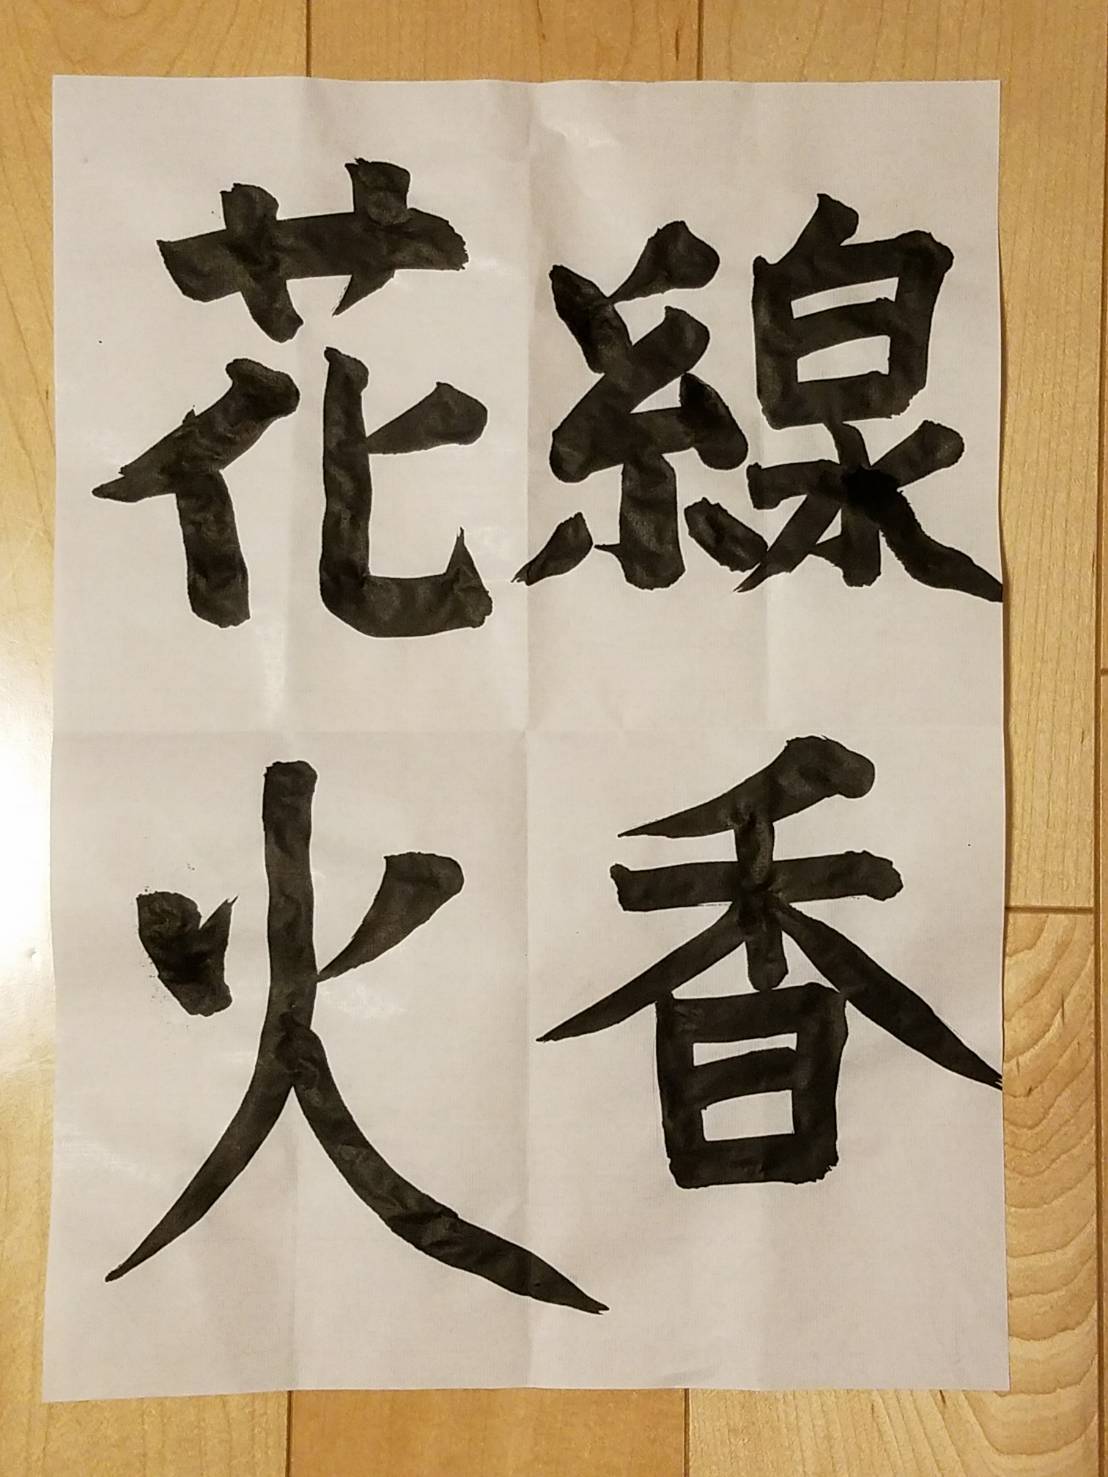 線香
花火